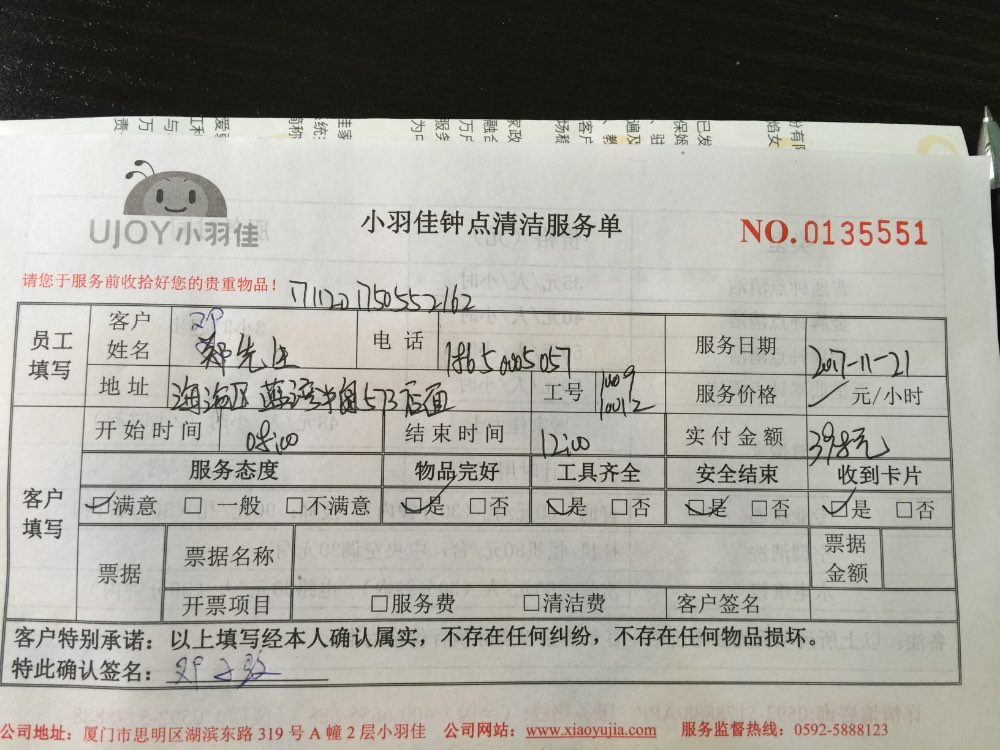 UJOY小羽佳
小羽佳钟点清洁服务单
NO.0135551
请您于服务前收拾好您的贵重物品！
17112017505521 62
员工填写
客户姓名 郑先生 电话 18650005057 服务日期 2017-11-21
地址 海沧区 573店面 工号 服务价格 元/小时
客户填写
开始时间 08:00 结束时间 12:00 实付金额 398元
服务态度 物品完好 工具齐全 安全结束 收到卡片
☑满意 □一般 □不满意 ☑是 □否 ☑是 □否 ☑是 □否 ☑是 □否
票据 票据名称 票据金额
开票项目 □服务费 □清洁费 客户签名
客户特别承诺：以上填写经本人确认属实，不存在任何纠纷，不存在任何物品损坏。
特此确认签名：
公司地址：厦门市思明区湖滨东路 319 号 A 幢 2 层小羽佳 公司网站：www.xiaoyujia.com 服务监督热线：0592-5888123